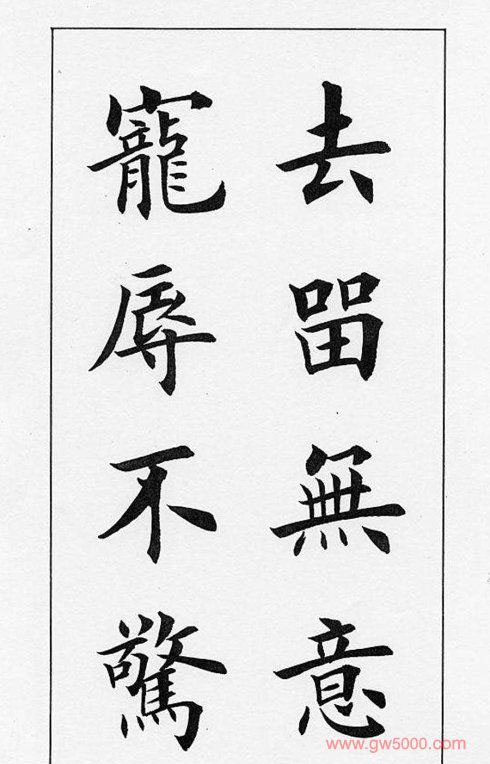 去留無意
寵辱不驚
www.gw5000.com